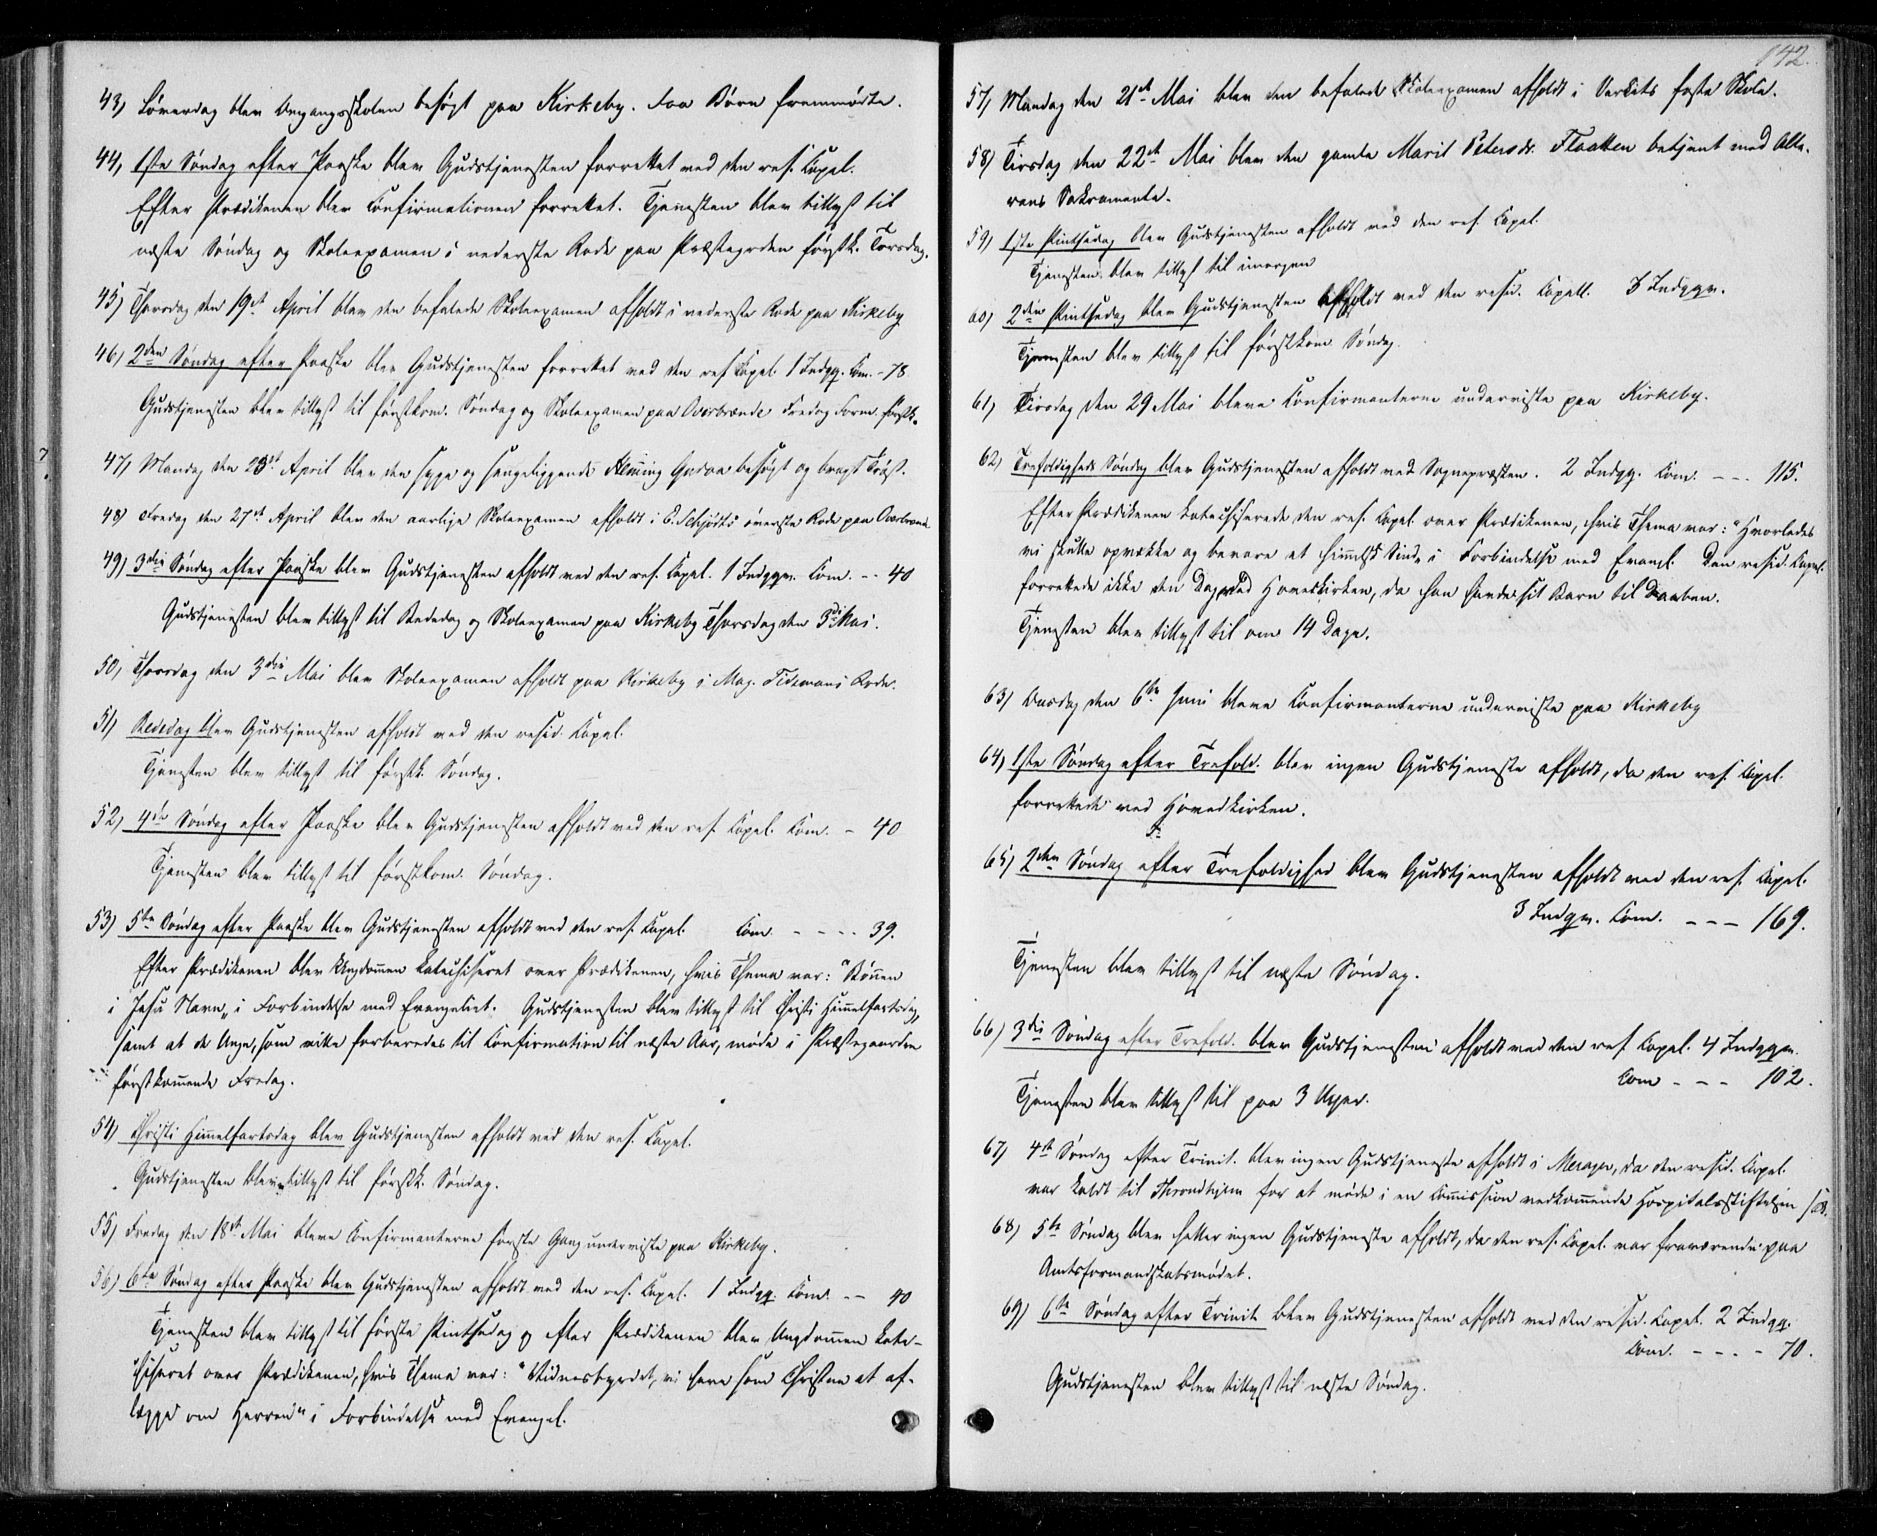 43) Løverdag blev Omgangsskolen besøgt paa Kirkeby. Faa Børn fremmødte.
44, 1ste Søndag efter Paaske blev Gudstjenesten forrettet ved den res. Capel.
Efter Prædikenen blev Confirmationen forrettet. Tjenesten blev tillyst til
næste Søndag og Skoleexamen i nederste Rode paa Præstegrden førstk. Torsdag.
45) Thorsdag den 19de April blev den befalede Skoleexamen afholdt i nederste Rode paa Kirkeby
46, 2den Søndag efter Paaske blev Gudstjenesten forrettet ved den res Capel. 1 Indgg. Com. - 78
Gudstjenesten blev tillyst til førstkom. Søndag og Skoleexamen paa Overbrænde Fredag Form. førstk.
47, Mandag den 23de April blev den syge og sengeliggende Henning besøgt og bragt Trøst.
48) Fredag den 27de April blev den aarlige Skoleexamen afholdt i C. Schjødts øverste Rode paa Overbrænd
49) 3die Søndag efter Paaske blev Gudstjenesten afholdt ved den res. Capel. 1 Indggn. Com. -- 40
Gudstjenesten blev tillyst til Bededag og Skoleexamen paa Kirkeby Thorsdag den 3die Mai.
50, Thorsdag den 3die Mai blev Skoleexamen afholdt paa Kirkeby i Mag. Tidemans Rode.
51) Bededag blev Gudstjenesten afholdt ved den resid. Capel.
Tjenesten blev tillyst til førstk. Søndag.
52, 4de Søndag efter Paaske blev Gudstjenesten afholdt ved den res. Capel. Com. - 40
Tjenesten blev tillyst til førstkom. Søndag.
53) 5te Søndag efter Paaske blev Gudstjenesten afholdt ved den res. Capel. Com. - - - - 39.
Efter Prædikenen blev Ungdom̄en katechiseret over Prædikenen, hvis Thema var: "Bøn̄en
i Jesu Navn„ i Forbindelse med Evangeliet. Gudstjenesten blev tillyst til Christi Him̄elfartsdag,
samt at de Unge, som ville forberedes til Confirmation til næste Aar, møde i Præstegaarden
førstkom̄ende Fredag.
54) Christi Him̄elfartsdag blev Gudstjenesten afholdt ved den res. Capel.
Gudstjenesten blev tillyst til førstk. Søndag.
55) Fredag den 18de Mai bleve Confirmanterne første Gang underviste paa Kirkeby.
56) 6te Søndag efter Paaske blev Gudstjenesten afholdt ved den res. Capel. 1 Indgg. Com. -- 40
Tjenesten blev tillyst til første Pintsedag og efter Prædikenen blev Ungdom̄en kate-
chiseret over Prædikenen, hvis Thema var: "Vidnesbyrdet, vi have som Christne at af-
lægge om Herren" i Forbindelse med Evangel.
142.
57, Mandag den 21de Mai blev den befalede Skoleexamen afholdt i Verkets faste Skole.
58) Tirsdag den 22de Mai blev den gamle Marit Petersdr. Flaatten betjent med Alte-
rens Sakramente.
59, 1ste Pintsedag blev Gudstjenesten afholdt ved den res. Capel.
Tjenesten blev tillyst til imorgen
60) 2den Pintsedag blev Gudstjenesten afholdt ved den resid. Capell. 3 Indggn.
Tjenesten blev tillyst til førstkom. Søndag.
61) Tirsdag den 29 Mai bleve Confirmanterne underviste paa Kirkeby.
62, Trefoldigheds Søndag blev Gudstjenesten afholdt ved Sognepræsten. 2 Indgg. Com. - - - 115.
Efter Prædikenen katechiserede den res. Capel. over Prædikenen, hvis Thema var: "Hvorledes
vi skulle opvække og bevare et him̄elsk Sind„ i Forbindelse med Evangl. Den resid. Capel.
forrettede ikke den Dag ved Hovedkirken, da han havde sit Barn til Daaben.
Tjenesten blev tillyst til om 14 Dage.
63) Onsdag den 6te Juni bleve Confirmanterne underviste paa Kirkeby
64, 1ste Søndag efter Trefold. blev ingen Gudstjeneste afholdt, da den res. Capel.
forrettede ved Hovedkirken.
65) 2den Søndag efter Trefoldighed blev Gudstjenesten afholdt ved den res. Capel.
3 Indggn. Com. - - - 169.
Tjenesten blev tillyst til næste Søndag.
66) 3die Søndag efter Trefold. blev Gudstjenesten afholdt ved den res. Capel. 4 Indggn.
Com - - - 102.
Tjenesten blev tillyst til paa 3 Uger.
67) 4de Søndag efter Trinit. blev ingen Gudstjeneste afholdt i Merager, da den resid. Capel.
var kaldt til Throndhjem for at møde i en Com̄ission vedkom̄ende Hospitalsstiftelsen
68) 5te Søndag blev heller ingen Gudstjeneste afholdt, da den res. Capel. var fraværende paa
Amtsformandskabsmødet.
69) 6te Søndag efter Trinit blev Gudstjenesten afholdt ved den resid. Capel. 2 Indgg.
Com. - - - - 70.
Gudstjenesten blev tillyst til næste Søndag.